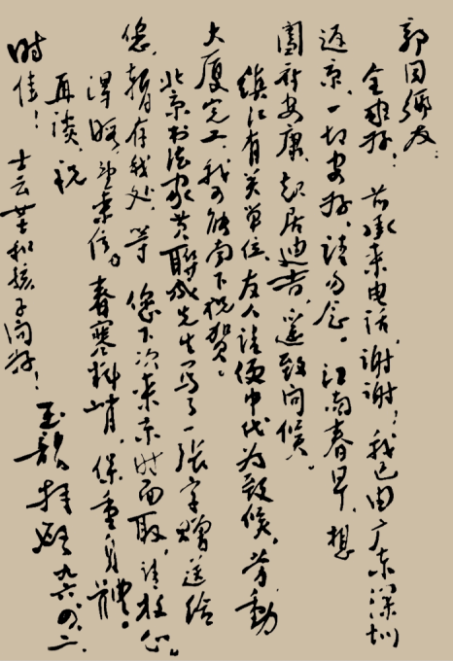 郭友:
全好!承来电话,谢谢!我已由广东深圳
返京,一切安好,请勿念。江南春早,想
阖府安康,起居迪吉,遥致问候。
镇江有关单位、友人请便中代为致候。劳动
大厦完工,我可能南下祝贺。
北京书法家黄联成先生写了一张字赠送给
您,暂存我处,等 您下次来京时面取,请放心。
来信。春寒料峭,保重身体。
再谈,祝
时佳!
士云和孩子问好!
玉龙拜 九六.四.二.